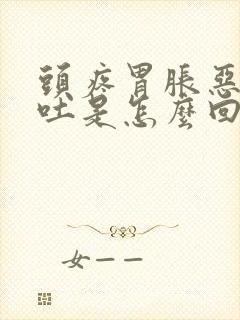 頭疼胃脹惡
吐是怎麼回
女——